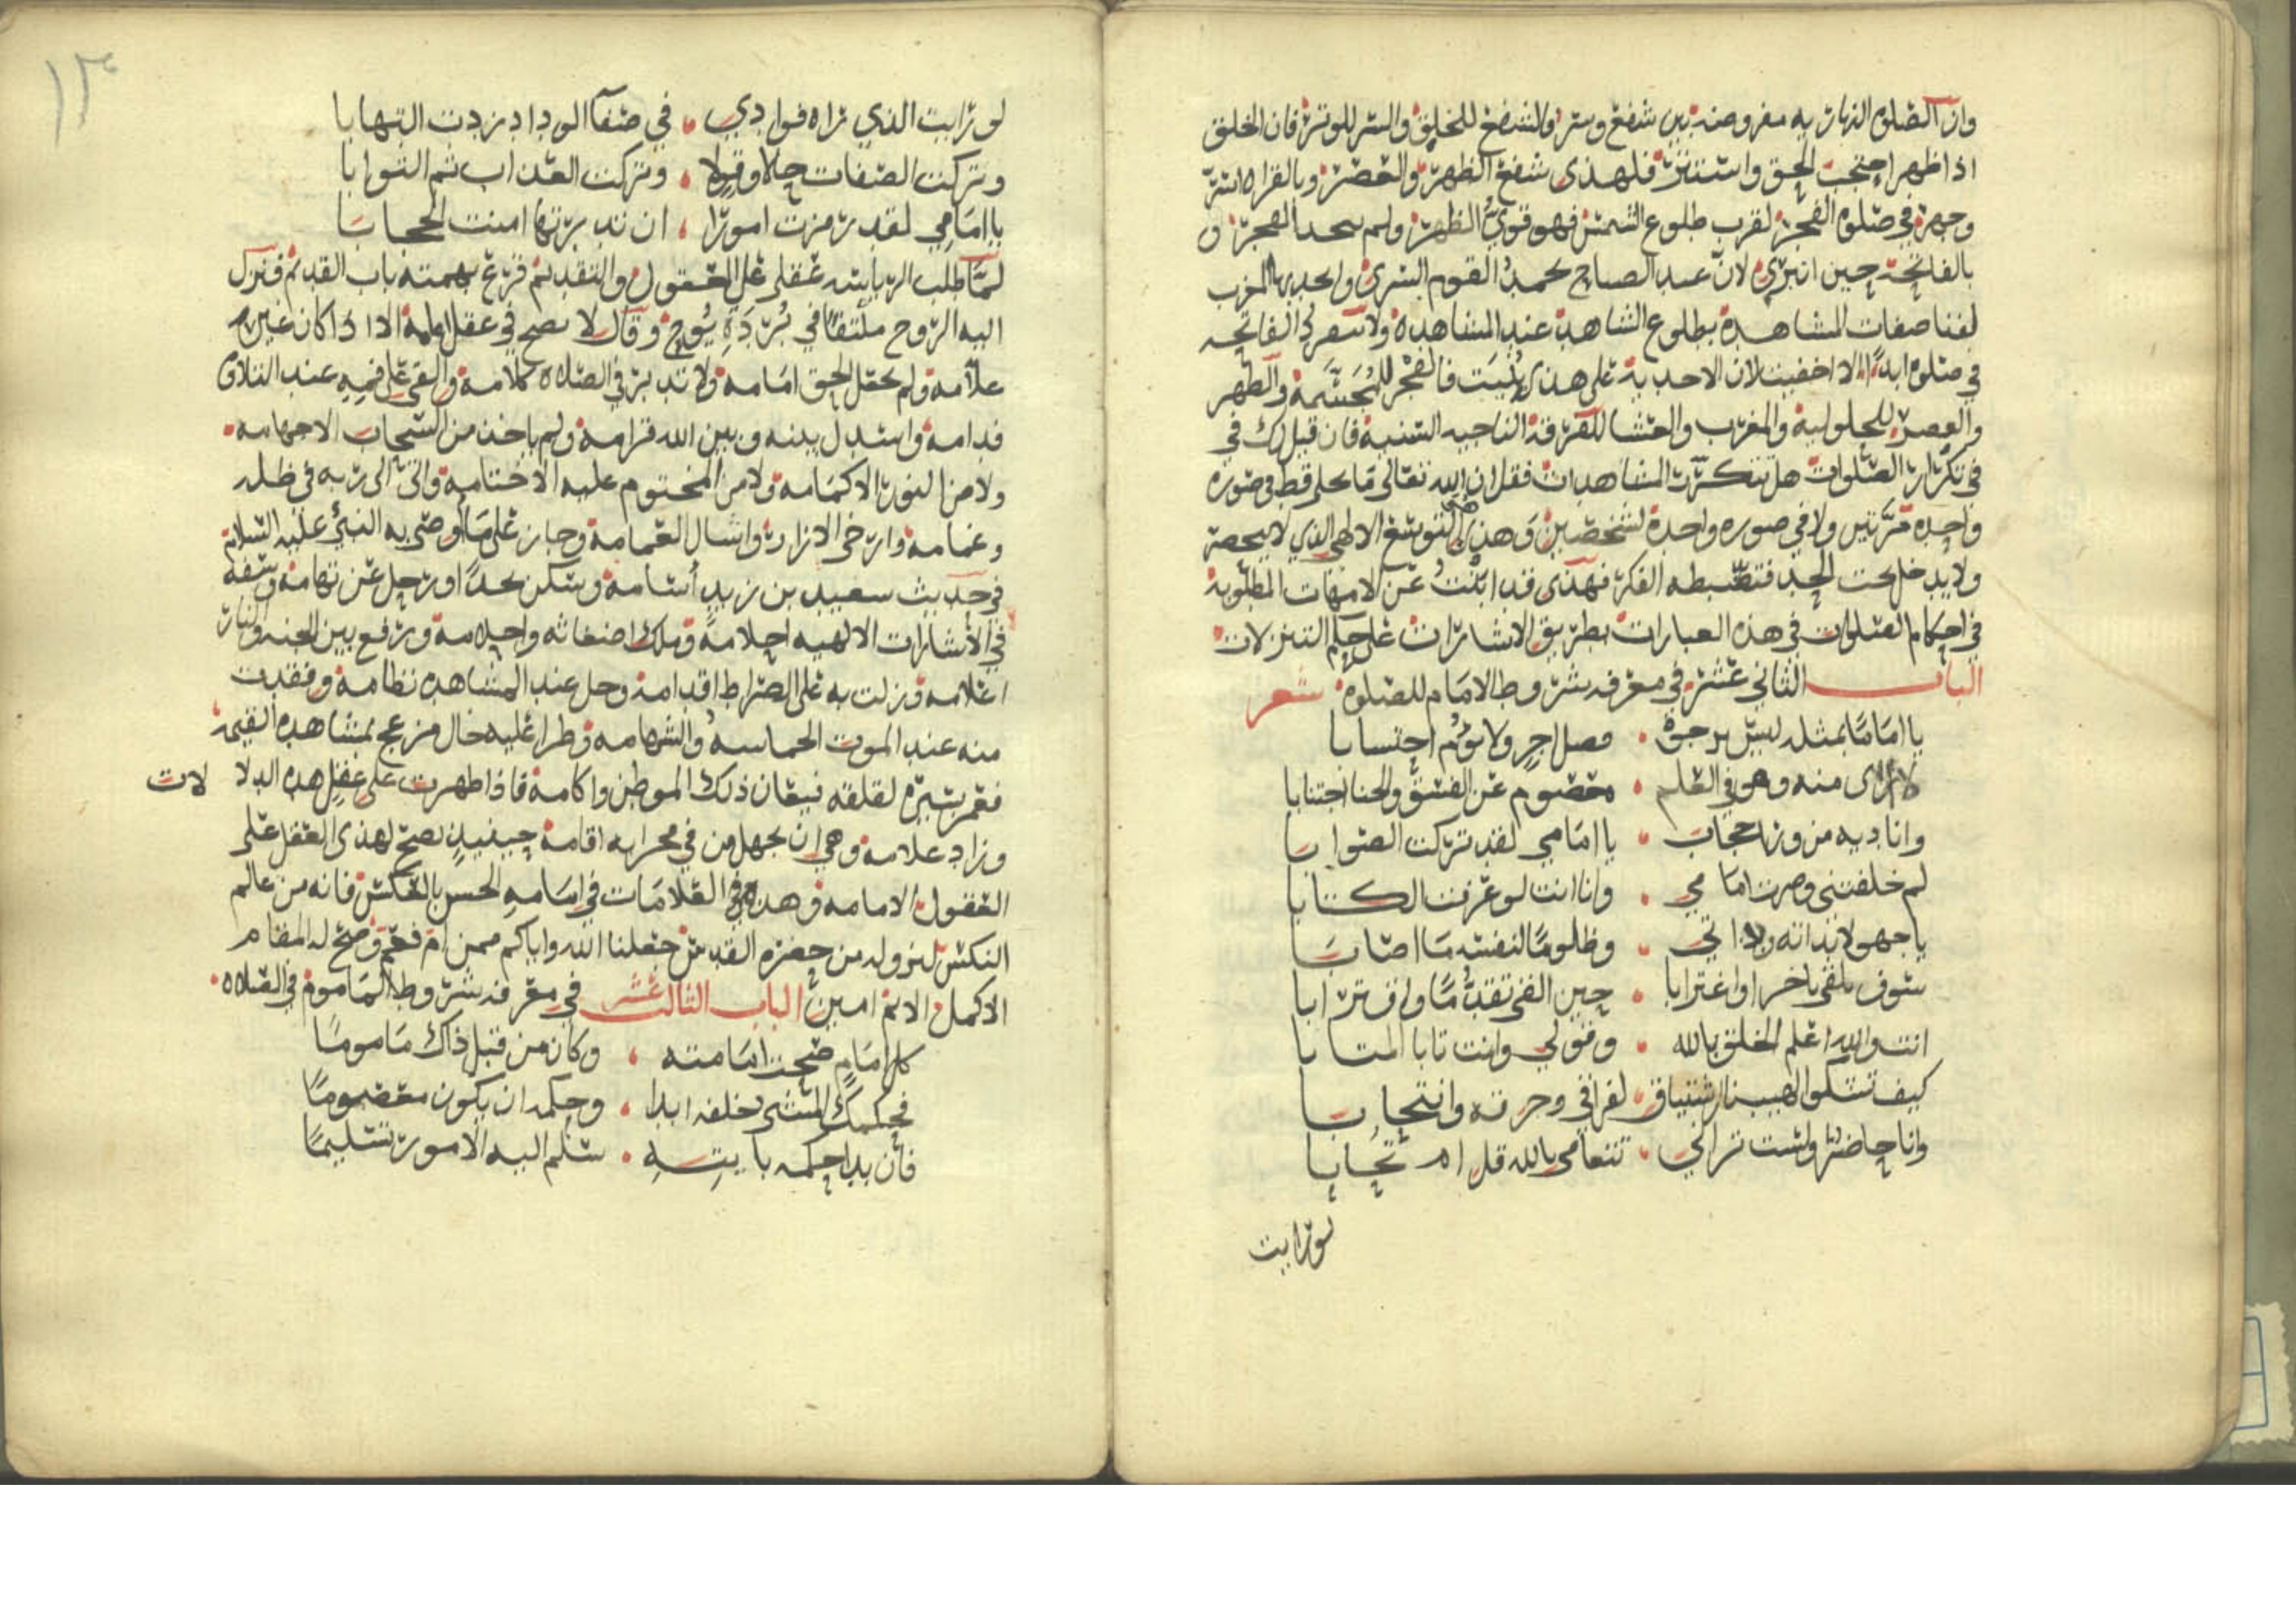 وان الصلوه النهاريه مفروضه بين شفع وستر والشفع للخلق والستر للوتر فان الخلق
اذا ظهر احتجب الحق واستتر فلهذى شفع الظهر والعصر وبالقراه استتر
وجهر في صلوه الفجر لقرب طلوع الشمس فهو قوي الظهر ولم
بالفاتحة حين انبرى لان عند الصباح يحمد القوم السرى المغرب
لفنا صفات المشاهدة بطلوع الشاهد عند المشاهده ولا الفاتحه
في صلوه ابدا الا اخفيت لان الاحديه على هذى بُنِيَت فالفجر للمُجَسّمة والظهر
والعصر للحلولية والمغرب والعشا للفرقة الناجيه السنية فان قيل لك في
في تكرار الصلوات هل تتكرر المشاهدات فقل ان الله تعالى ما تجلى قط في صوره
واحده مرتين ولا في صوره واحدة لشخصين وهذى التوسع الالهي الذي لا يحصر
ولا يدخل تحت الحد فتضبطه الفكر فهذى قد ابنت عن الامهات المطلوبة
في احكام الصلوات في هذه العبارات بطريق الاشارات على حكم التنزلات
الباب الثاني عشر في معرفه شروط الامام للصلوه شعر
يا اماما بمثله ليس يرجى • فصل احر ولا تؤم احتسابا
لا اراى منه وهو في العلم • معصوم عن الفسق والخنا اجتنابا
واناديه من ورا حجاب • يا امامي لقد تركت الصوابا
لم خلفتني وصرت امامي • وانا انت لو عرفت الكتابا
يا جهولا بذاته وبذاتي • وظلوما لنفسه ما اصابَ
سوف تلقى اواغترابا • حين الفى تقدما
انت والله اعلم الخلق بالله • وقولي وانت تابا المتابا
كيف تشكوا الهيبنا اشتياق • لفراقي وحرقه وانتحابا
وانا حاضر ولست تراني • تتعامى بالله قل ام تحابا
لو رايت
١٣
لو رايت الذي تراه فوادي • في صفآ الوداد زدت التهابا
وتركت الصفات حالا وقولا • وتركت العذاب ثم الثوابا
يا امامي لقد رمزت امورا • ان تدبرتها امنت الحجابَا
لما طلب الرياسه عقلى على العقول والتقدم قرع بهمته باب القدم فنزل
اليه الروح ملتفا في بُرْدَةِ يُوح وقال لا تصح في عقل امامة الا اذا كان غيره
علامه ولم يجعل الحق امامه ولا تدبر في الصلاه كلامه والقى على فمه عند التلاق
فدامه واسدل بينه وبين الله قرامه ولم ياخذ من السحاب الا جهامه
ولا من النور الا كمامه ولا من المختوم عليه الا ختامه واتى الى ربه في ظلل
وغمامه وارخى الازار واشال العمامة وجاز على ما أوصى به النبي عليه السلام
في حديث سعيد بن زيد أسامه وسكن نجدا ورحل عن تهامه وسفه
في الاشارات الالهيه احلامه وملك اضغاثه واحلامه ورفع بين الجنه والنار
اعلامه وزلت به على الصراط اقدامه وحل عند المشاهده نظامه وفقدت
منه عند الموت الحماسه والشهامه وطرا عليه حال مزعج بمشاهده القيمه
فغمر لقلقه ذلك الموطن واكامه فاذا ظهرت على عقل هذه الدلا لات
وزاد علامه وهي ان يجهل من في محرابه اقامه حينيذ تصح لهذى العقل على
العقول الامامه وهذه هي العلامات في امامه الحس بالعكس فانه من عالم
النكس لنزوله من حضره القدس جعلنا الله واياكم ممن ام فعم وصح له المقام
الاكمل الاتم امين الباب الثالث عشر في معرفه شروط الماموم في الصلاه
كل امام صحت امامته • وكان من قبل ذاك مامومًا
فحكمك المشى خلفه ابدا • وحكمه ان يكون معصومًا
فان بدا حكمه بايتهِ • سلم اليه الامور تسليمًا